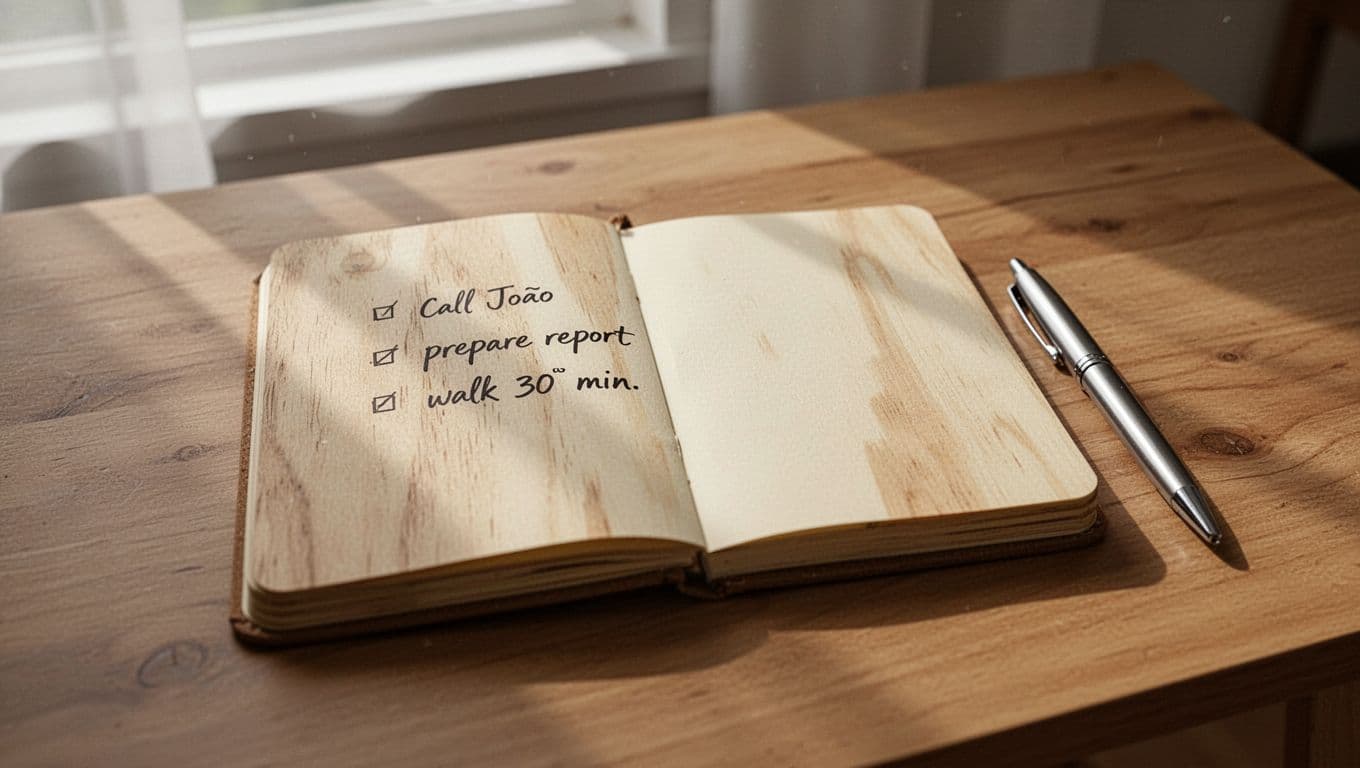 ☑ Call João
☑ prepare report
☑ walk 30 min.